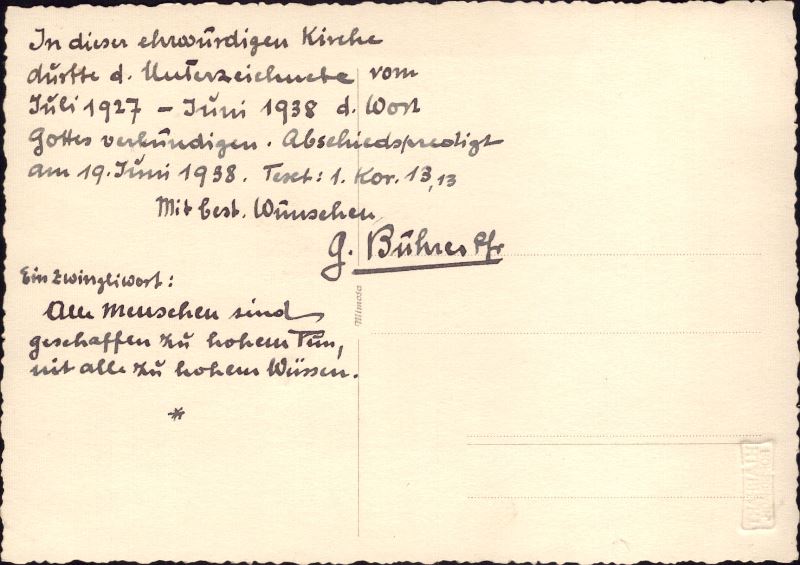 In dieser ehrwürdigen Kirche
durfte d. Unterzeichnete vom
Juli 1927 – Juni 1938 d. Wort
Gottes verkündigen. Abschiedspredigt
am 19. Juni 1938. Text: 1. Kor. 13,13
Mit best. Wünschen
G. Bührer Pfr
Ein Zwingliwort:
Alle Menschen sind
geschaffen zu hohem Tun,
nit alle zu hohem Wüssen.
*
Mimosa